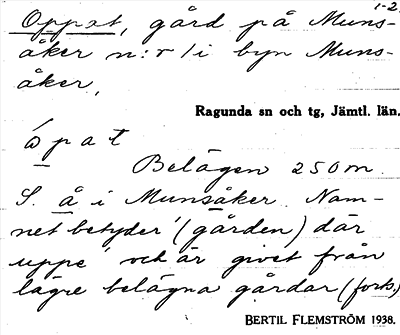 1-2
Oppat, gård på Muns-
åker n:r 1 i byn Muns-
åker.
Ragunda sn och tg, Jämtl. län.
ὼpat
Belägen 250 m.
S. å i Munsåker. Nam-
net betyder '(gården) där
uppe' och är givet från
lägre belägna gårdar (forts.)
BERTIL FLEMSTRÖM 1938.